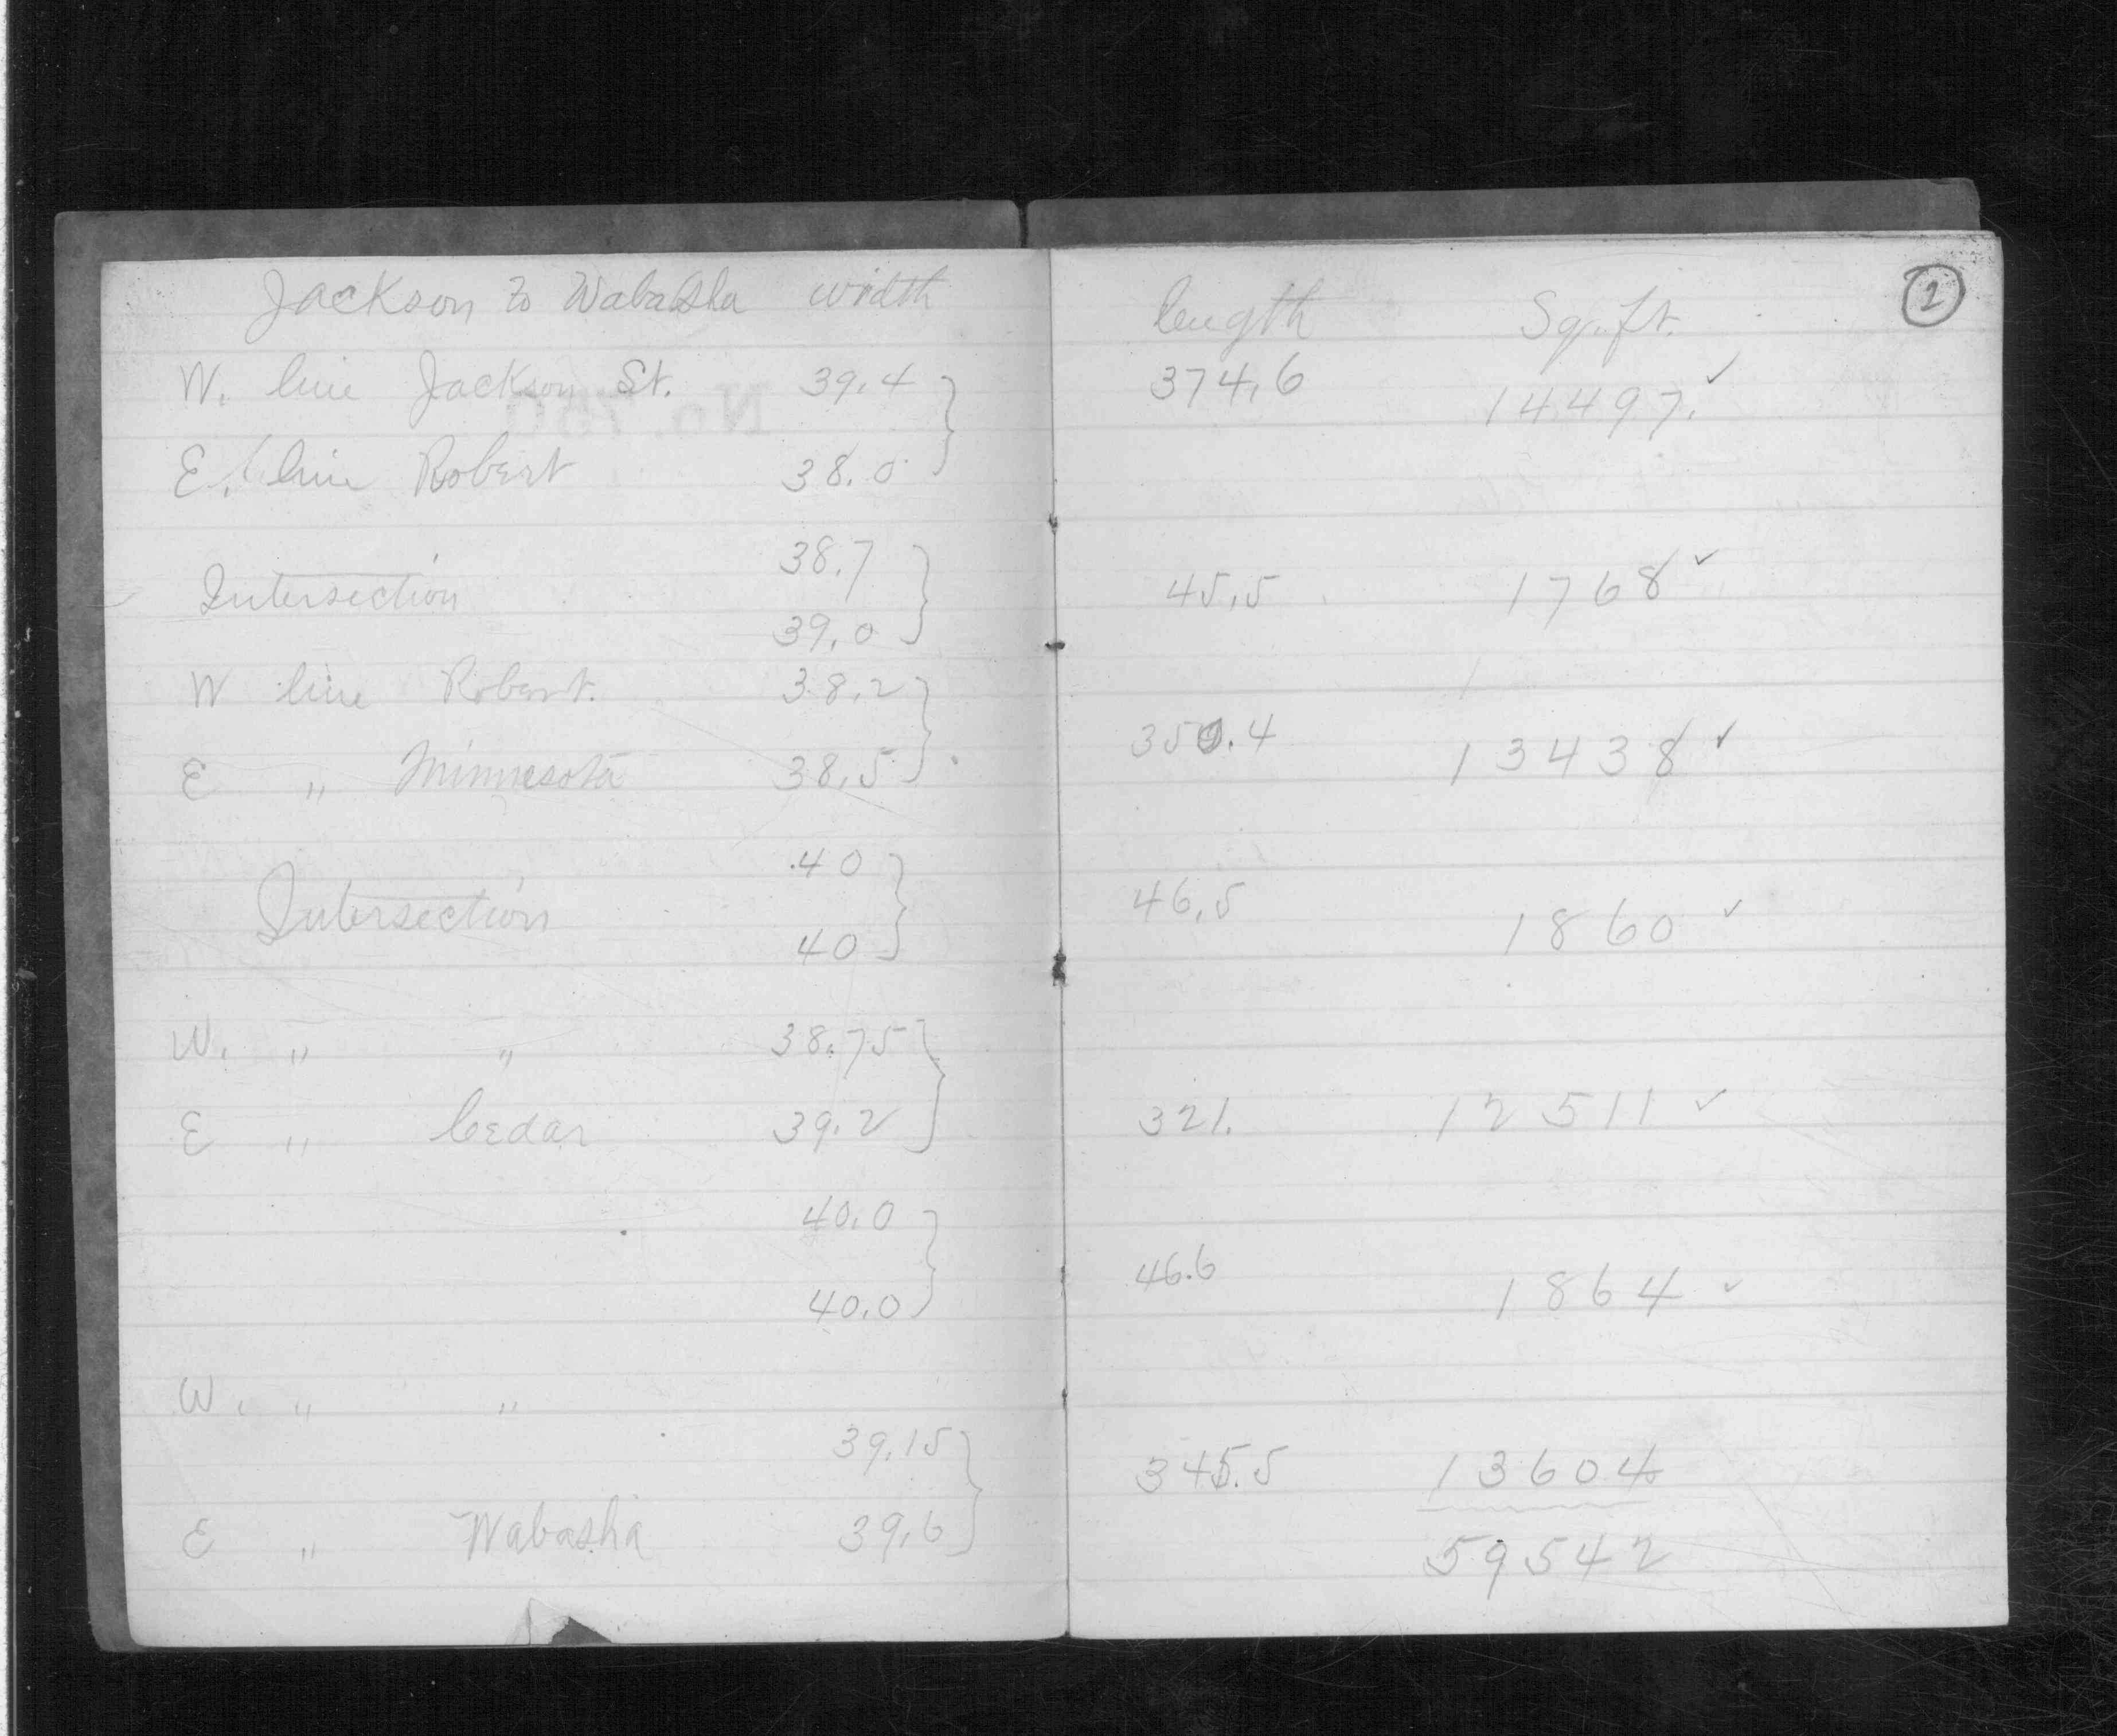 Jackson to Wabasha width length Sq. ft. 2
W. line Jackson St. 39.4 374.6 14497. ✓
No. 760
E. line Robert 38.0
38.7
Intersection 45.5 1768 ✓
39.0
W line Robert. 38.2
350.4 13438 ✓
E " Minnesota 38.5
40
Intersection 46.5 1860 ✓
40
W. " " 38.75
E " Cedar 39.2 321. 12511 ✓
40.0
46.6 1864 ✓
40.0
W. " "
39.15
345.5 13604
E " Wabasha 39.6 59542